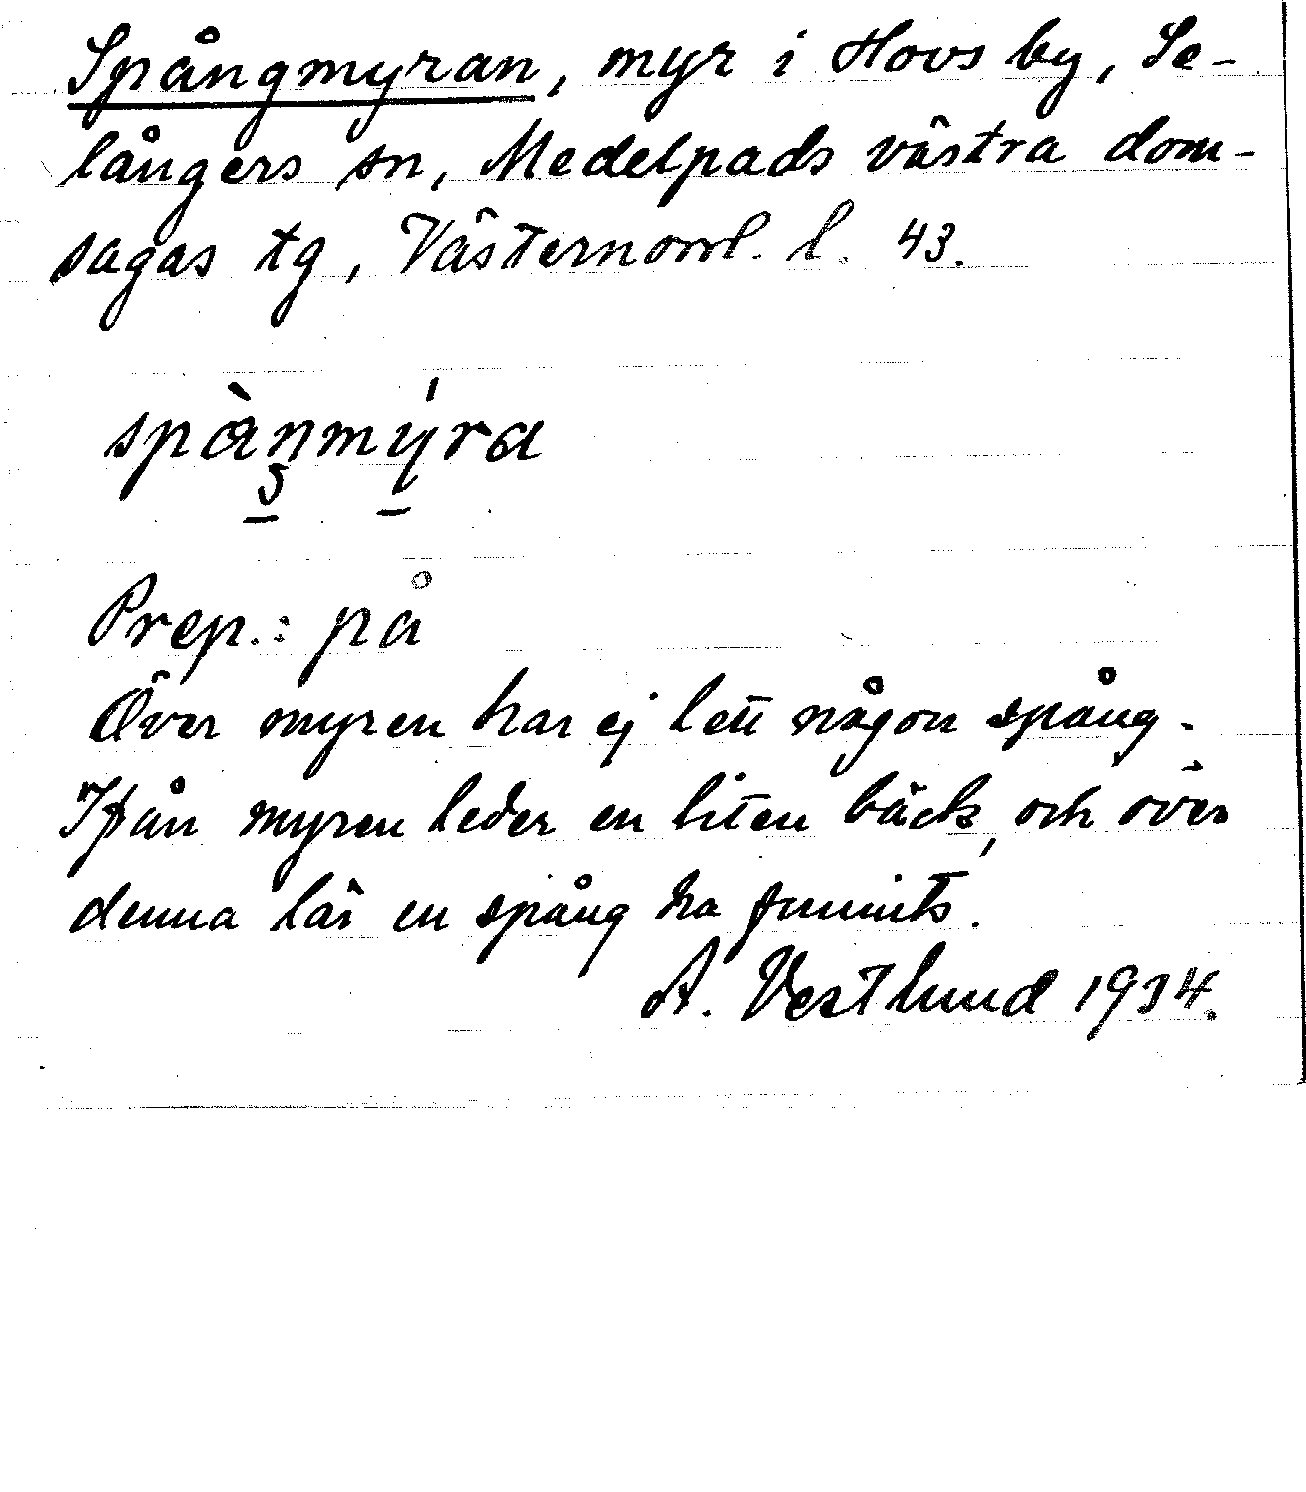 Spångmyran, myr i Hovs by, Se-
långers sn, Medelpads västra dom-
sagas tg, Västernorrl. l. 43.
spànmýra
Prep.: på
Över myren har ej lett någon spång.
Ifrån myren leder en liten bäck, och över
denna lär en spång ha funnits.
A. Vestlund 1934.